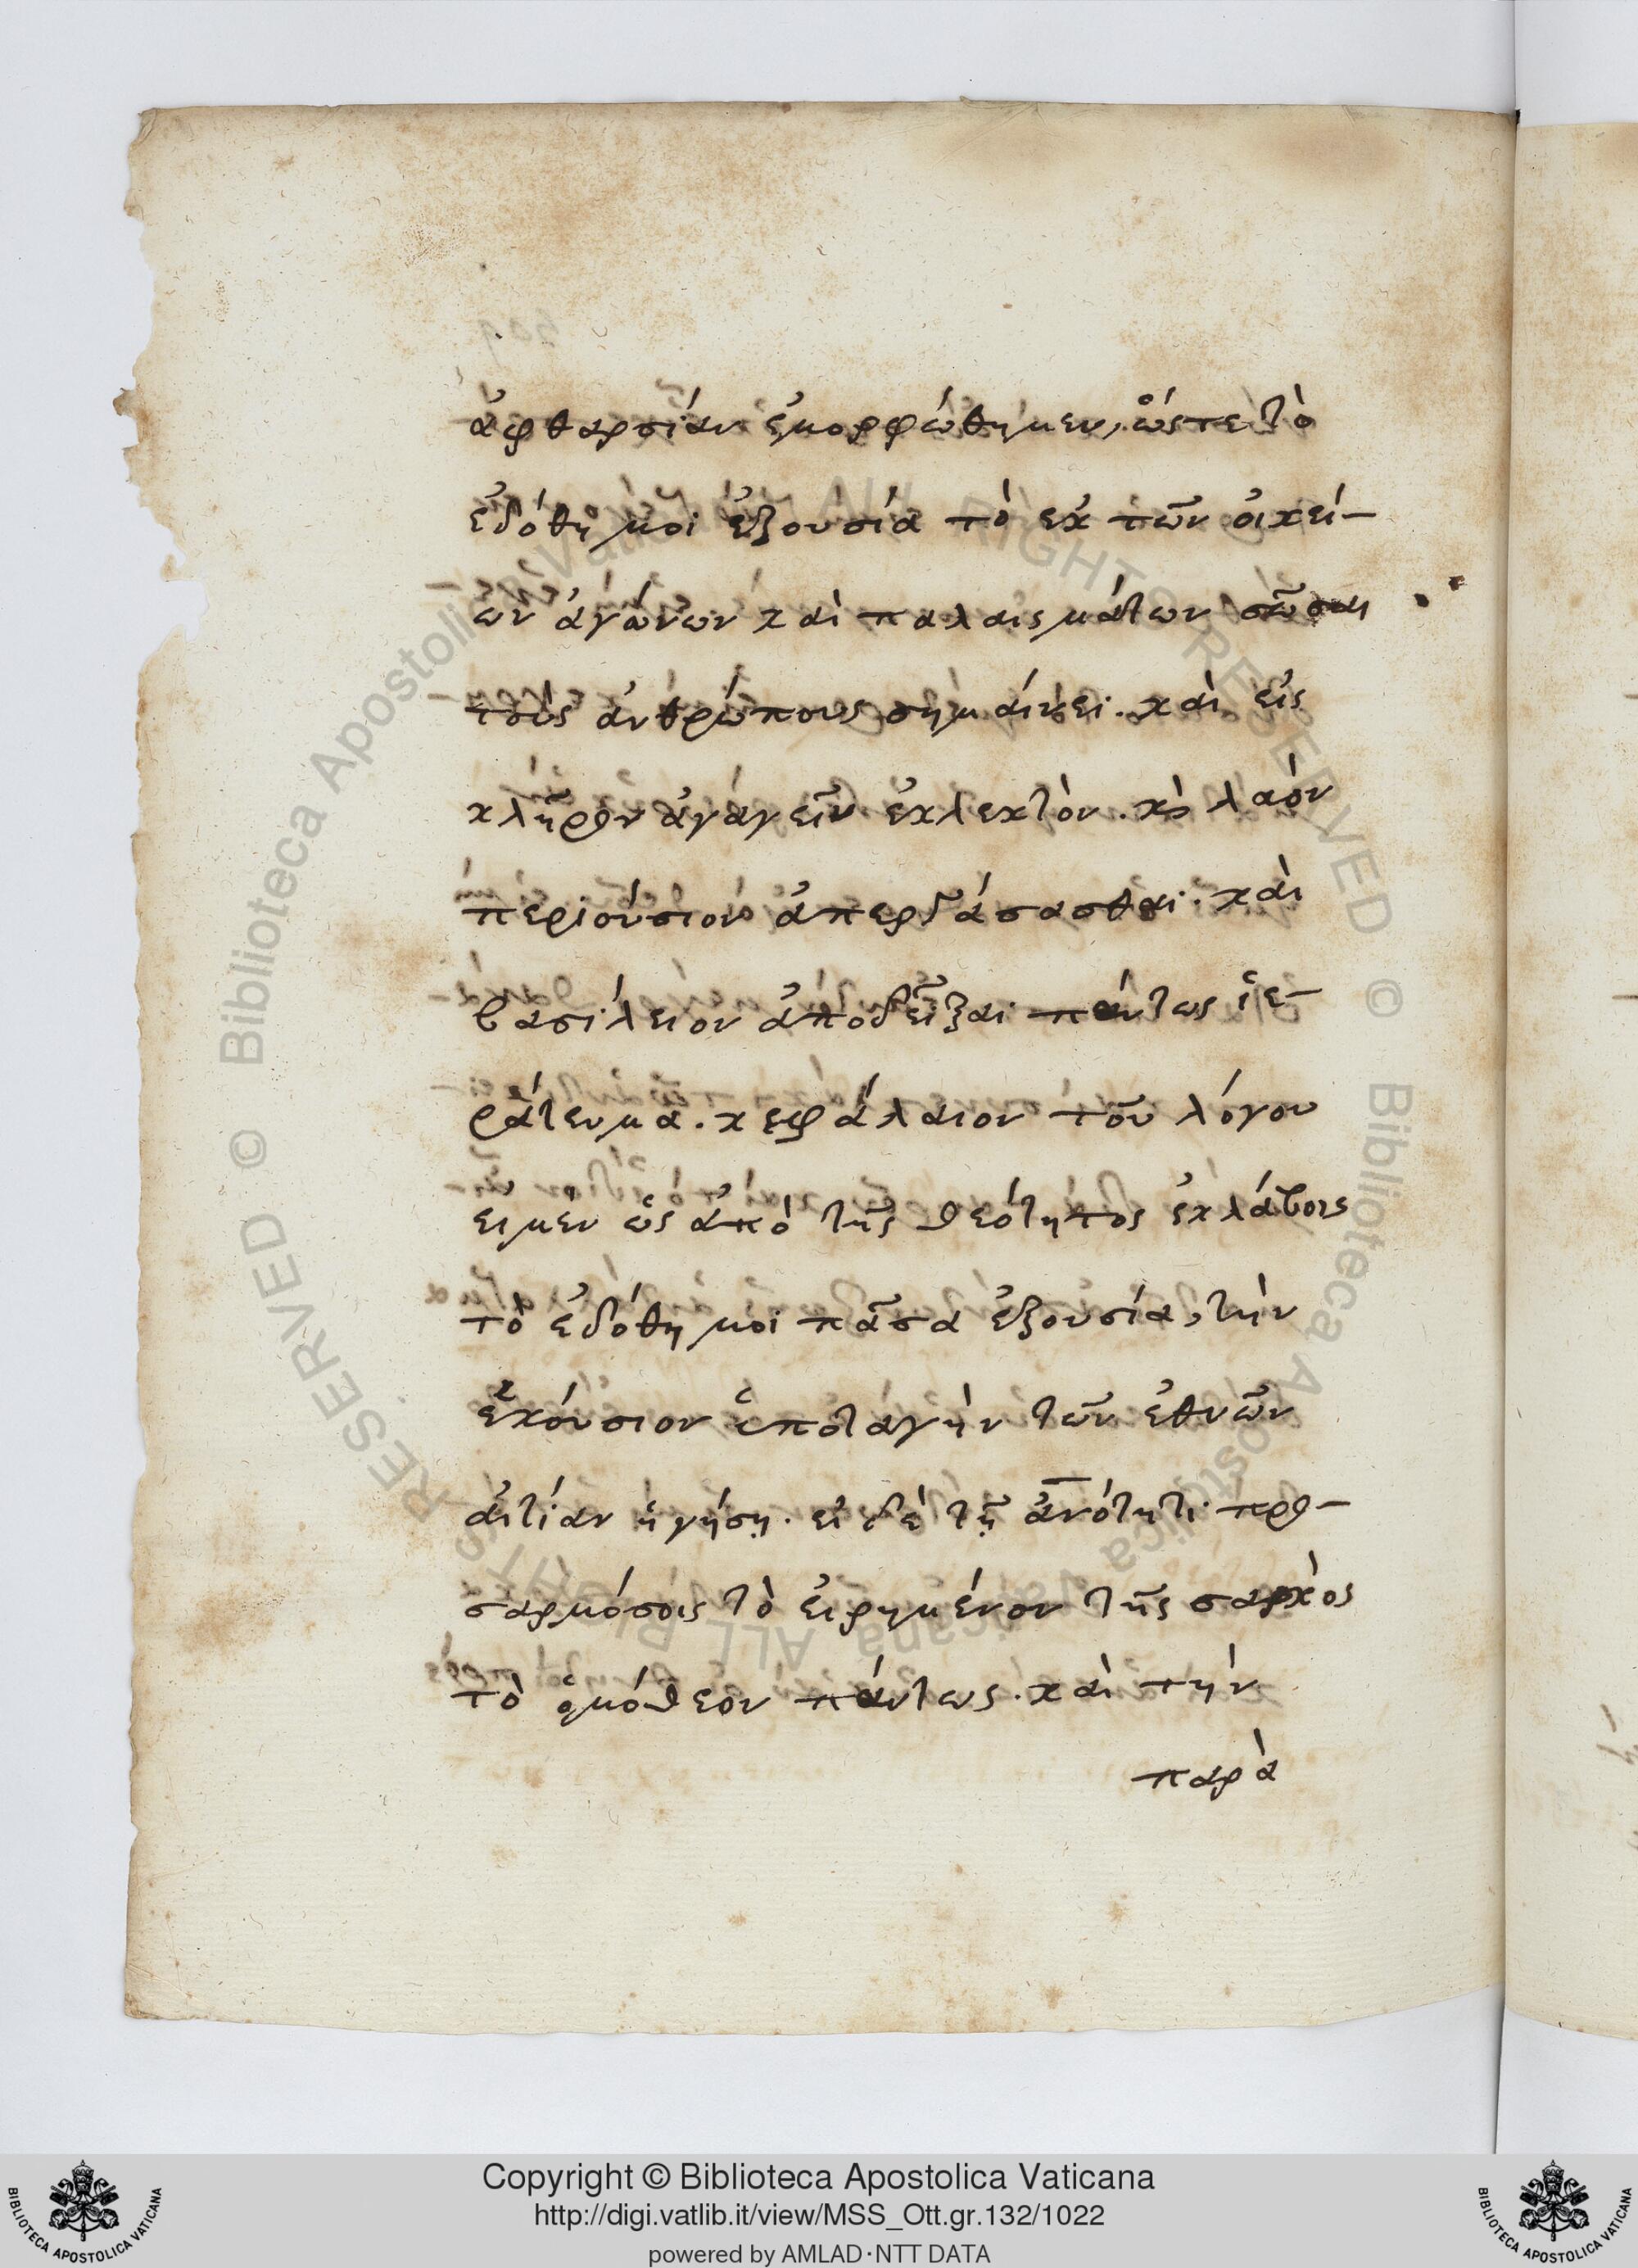 ἀφθαρσίαν ἐμορφώθημεν, ὥστε τὸ
ἐδόθη μοι ἐξουσία τὸ ἐκ τῶν οἰκεί-
ων ἀγώνων καὶ παλαισμάτων σῶσαι
τοὺς ἀνθρώπους σημαίνει. καὶ εἰς
κλῆρον ἀγαγεῖν ἐκλεκτὸν. κὸ λαὸν
περιούσιον ἀπεργάσασθαι. καὶ
βασίλειον ἀποδεῖξαι πάντως ἱε-
ράτευμα. κεφάλαιον τοῦ λόγου
ειμεν ὡς ἀπὸ τῆς θεότητος ἐκλάβοις
τὸ ἐδόθη μοι πᾶσα ἐξουσία, τὴν
ἑκούσιον ὑποταγὴν τῶν ἐθνῶν
αἰτίαν ἡγήσῃ. εἰ δὲ τῇ ἀνότητι προ-
σαρμόσοις τὸ εἰρημένον τῆς σαρκὸς
τὸ ὁμόθεον πάντως. καὶ τὴν
παρὰ
Biblioteca Apostolica Vaticana ALL RIGHTS RESERVED © Biblioteca Apostolica Vaticana ALL RIGHTS RESERVED ©
Copyright © Biblioteca Apostolica Vaticana
http://digi.vatlib.it/view/MSS_Ott.gr.132/1022
powered by AMLAD·NTT DATA
BIBLIOTECA APOSTOLICA VATICANA
BIBLIOTECA APOSTOLICA VATICANA